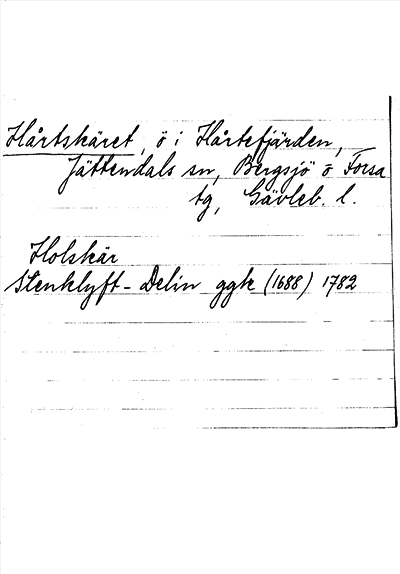 Hårtskäret, ö i Hårtefjärden,
Jättendals sn, Bergsjö o Forsa
tg, Gävleb. l.
Holskär
Stenklyft-Delin ggk (1688) 1782